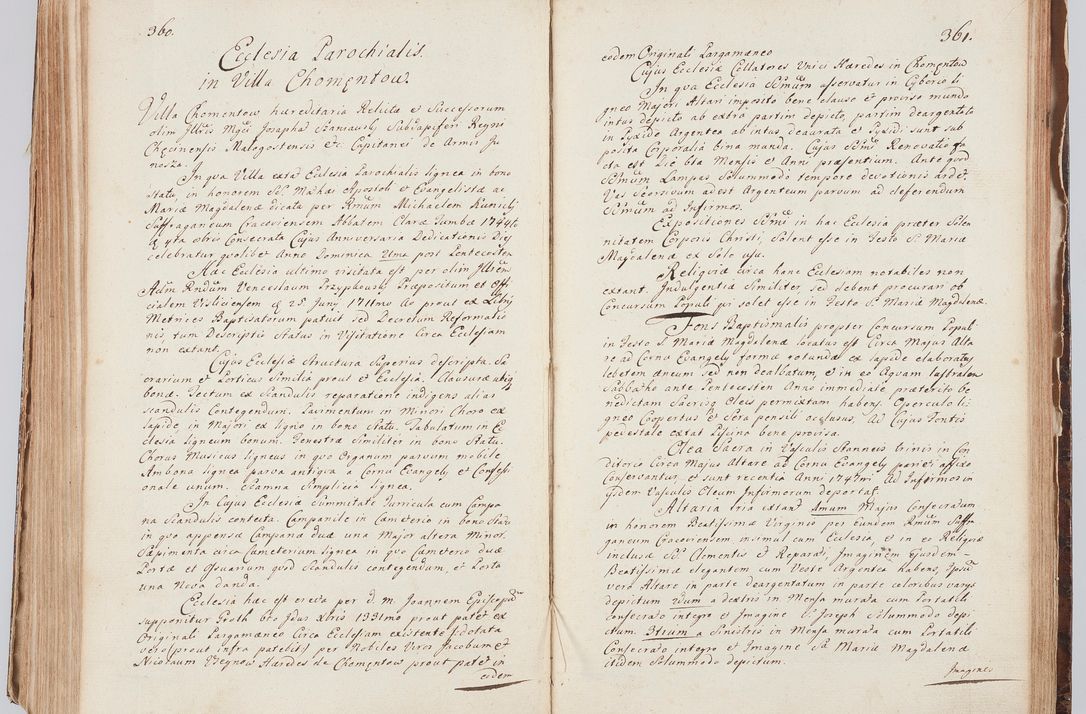 360.
Ecclesia Parochialis.
in Villa Chomentow.
Villa Chomentow hæreditaria Relictæ et Successorum
olim Illris Mgci Josaphat Szaniawsky SubDapiferi Regni
Chęcinensis Malogostensis etc. Capitanei de Armis Ju
nosza.
In qua Villa extat Ecclesia Parochialis lignea in bono
statu, in honorem Sti Mathæi Apostoli et Evangelistæ ac
Mariæ Magdalenæ dicata per Rmum Michaelem Kunicki
Suffraganeum Cracoviensem Abbatem Claræ Tumbæ 1744to
4ta obris Consecrata Cujus Anniversaria Dedicationis Dies
celebratur quolibet Anno Dominica post Pentecosten
Hæc Ecclesia ultimo visitata est per olim Illrem
Adm Rndum Venceslaum Przypkowsky Præpositum et Offi
cialem Visliciensem 25 Junij 1711mo Ao prout ex Libris
Metrices Baptisatorum patuit sed Decretum Reformatio
nis, tum Descriptio Status in Visitatione Circa Ecclesiam
non extant.
Cujus Ecclesiæ Structura Superius descripta. Sa
crarium et Porticus Similia prout et Ecclesia, Clausuræ ubiq
bonæ. Tectum ex Scandulis reparatione indigens alias
scandulis Contegendum. Pavimentum in Minori Choro ex
lapide, in Majori ex ligno in bono Statu. Tabulatum in E
clesia ligneum bonum. Fenestræ Similiter in bono Statu.
Chorus Musicus ligneus in quo Organum parvum mobile
Ambona lignea parva antiqua a Cornu Evangely et Confessi
onale unum. Scamna Simplicia lignea.
In Cujus Ecclesiæ Summitate Turricula cum Campa
na Scandulis contecta. Campanile in Cæmeterio in bono Statu
in quo appensæ Campanæ duæ una Major altera Minor.
Sæpimenta circa Cæmeterium lignea in quo Cæmeterio duæ
Portæ et Ossuarium quod Scandulis contegendum, et Porta
una Nova danda.
Ecclesia hæc est erecta per d. m. Joannem Episcopum
supponitur Groth bto Idus xbris 1331mo prout patet ex
Originali Pargamæneo Circa Ecclesiam existente, dotata
vero (prout infra patebit) per Nobiles Viros Jacobum et
Nicolaum Vegnow Hærdes de Chomentow prout patet in
eodem
361.
eodem Originali Pargamæneo
Cujus Ecclesiæ Collatores Unici Hæredes in Chomentow
In qua Ecclesia Sctmum asservatur in Cyborio li
gneo Majori Altari imposito bene clauso et proviso mundo
intus depicto ab extra partim depicto, partim deargentato
in Pyxide Argentea ab intus deaurata et Pyxidi sunt sub
posita Corporalia bina munda. Cujus Sctmi Renovatio fa
cta est Die 6ta Mensis et Anni præsentium. Ante quod
Sctmum Lampas Solummodo tempore devotionis ardet.
Vas Seorsivum adest Argenteum parvum ad deferendum
Sctmum ad Infirmos.
Expositiones Sctmi in hac Ecclesia præter Solen
nitatem Corporis Christi, Solent esse in Festo S. Mariæ
Magdalenæ ex Solo usu.
Reliquiæ circa hanc Ecclesiam notabiles non
extant. Indulgentiæ Similiter, sed debent procurari ob
Concursum Populi qui solet esse in Festo S. Mariæ Magdalenæ.
Fons Baptismalis propter Concursum Populi
in Festo S. Mariæ Magdalenæ locatus est Circa Majus Alta
re a Cornu Evangely forma rotunda ex lapide elaboratus
lebetem æneum sed non dealbatum, et in eo Aquam lustralem
Sabbatho ante Pentecosten Anno immediate præterito be
nedictam Sacrisq Oleis permixtam habens. Operculo li:
gneo Coopertus et Sera pensili occlusus, Ad Cujus Fontis
pedestale extat Piscina bene provisa.
Olea Sacra in Vasculis Stanneis trinis in Con
ditorio Circa Majus Altare a Cornu Evangely parieti affixo
Conservantur, et sunt recentia Anni 1747mi Ad Infirmos in
iisdem Vasculis Oleum Infirmorum deportat.
Altaria tria extant 1mum Majus Consecratum
in honorem Beatissimæ Virginis per eundem Rmum Suffra
ganeum Cracoviensem insimul cum Ecclesia, et in eo Reliquiæ
inclusæ Sti Clementis et Reparati, Imaginem Ejusdem
Beatissimæ elegantem cum Veste Argentea habens, Ipsum
vero Altare in parte deargentatum in parte coloribus varys
depictum 2dum a dextris in Mensa murata cum Portatili
Consecrato integro et Imagine S. Joseph Solummodo depi
ctum. 3tium a sinistris in Mensa murata cum Portatili
Consecrato integro et Imagine S. Mariæ Magdalenæ
itidem Solummodo depictum.
Imagines